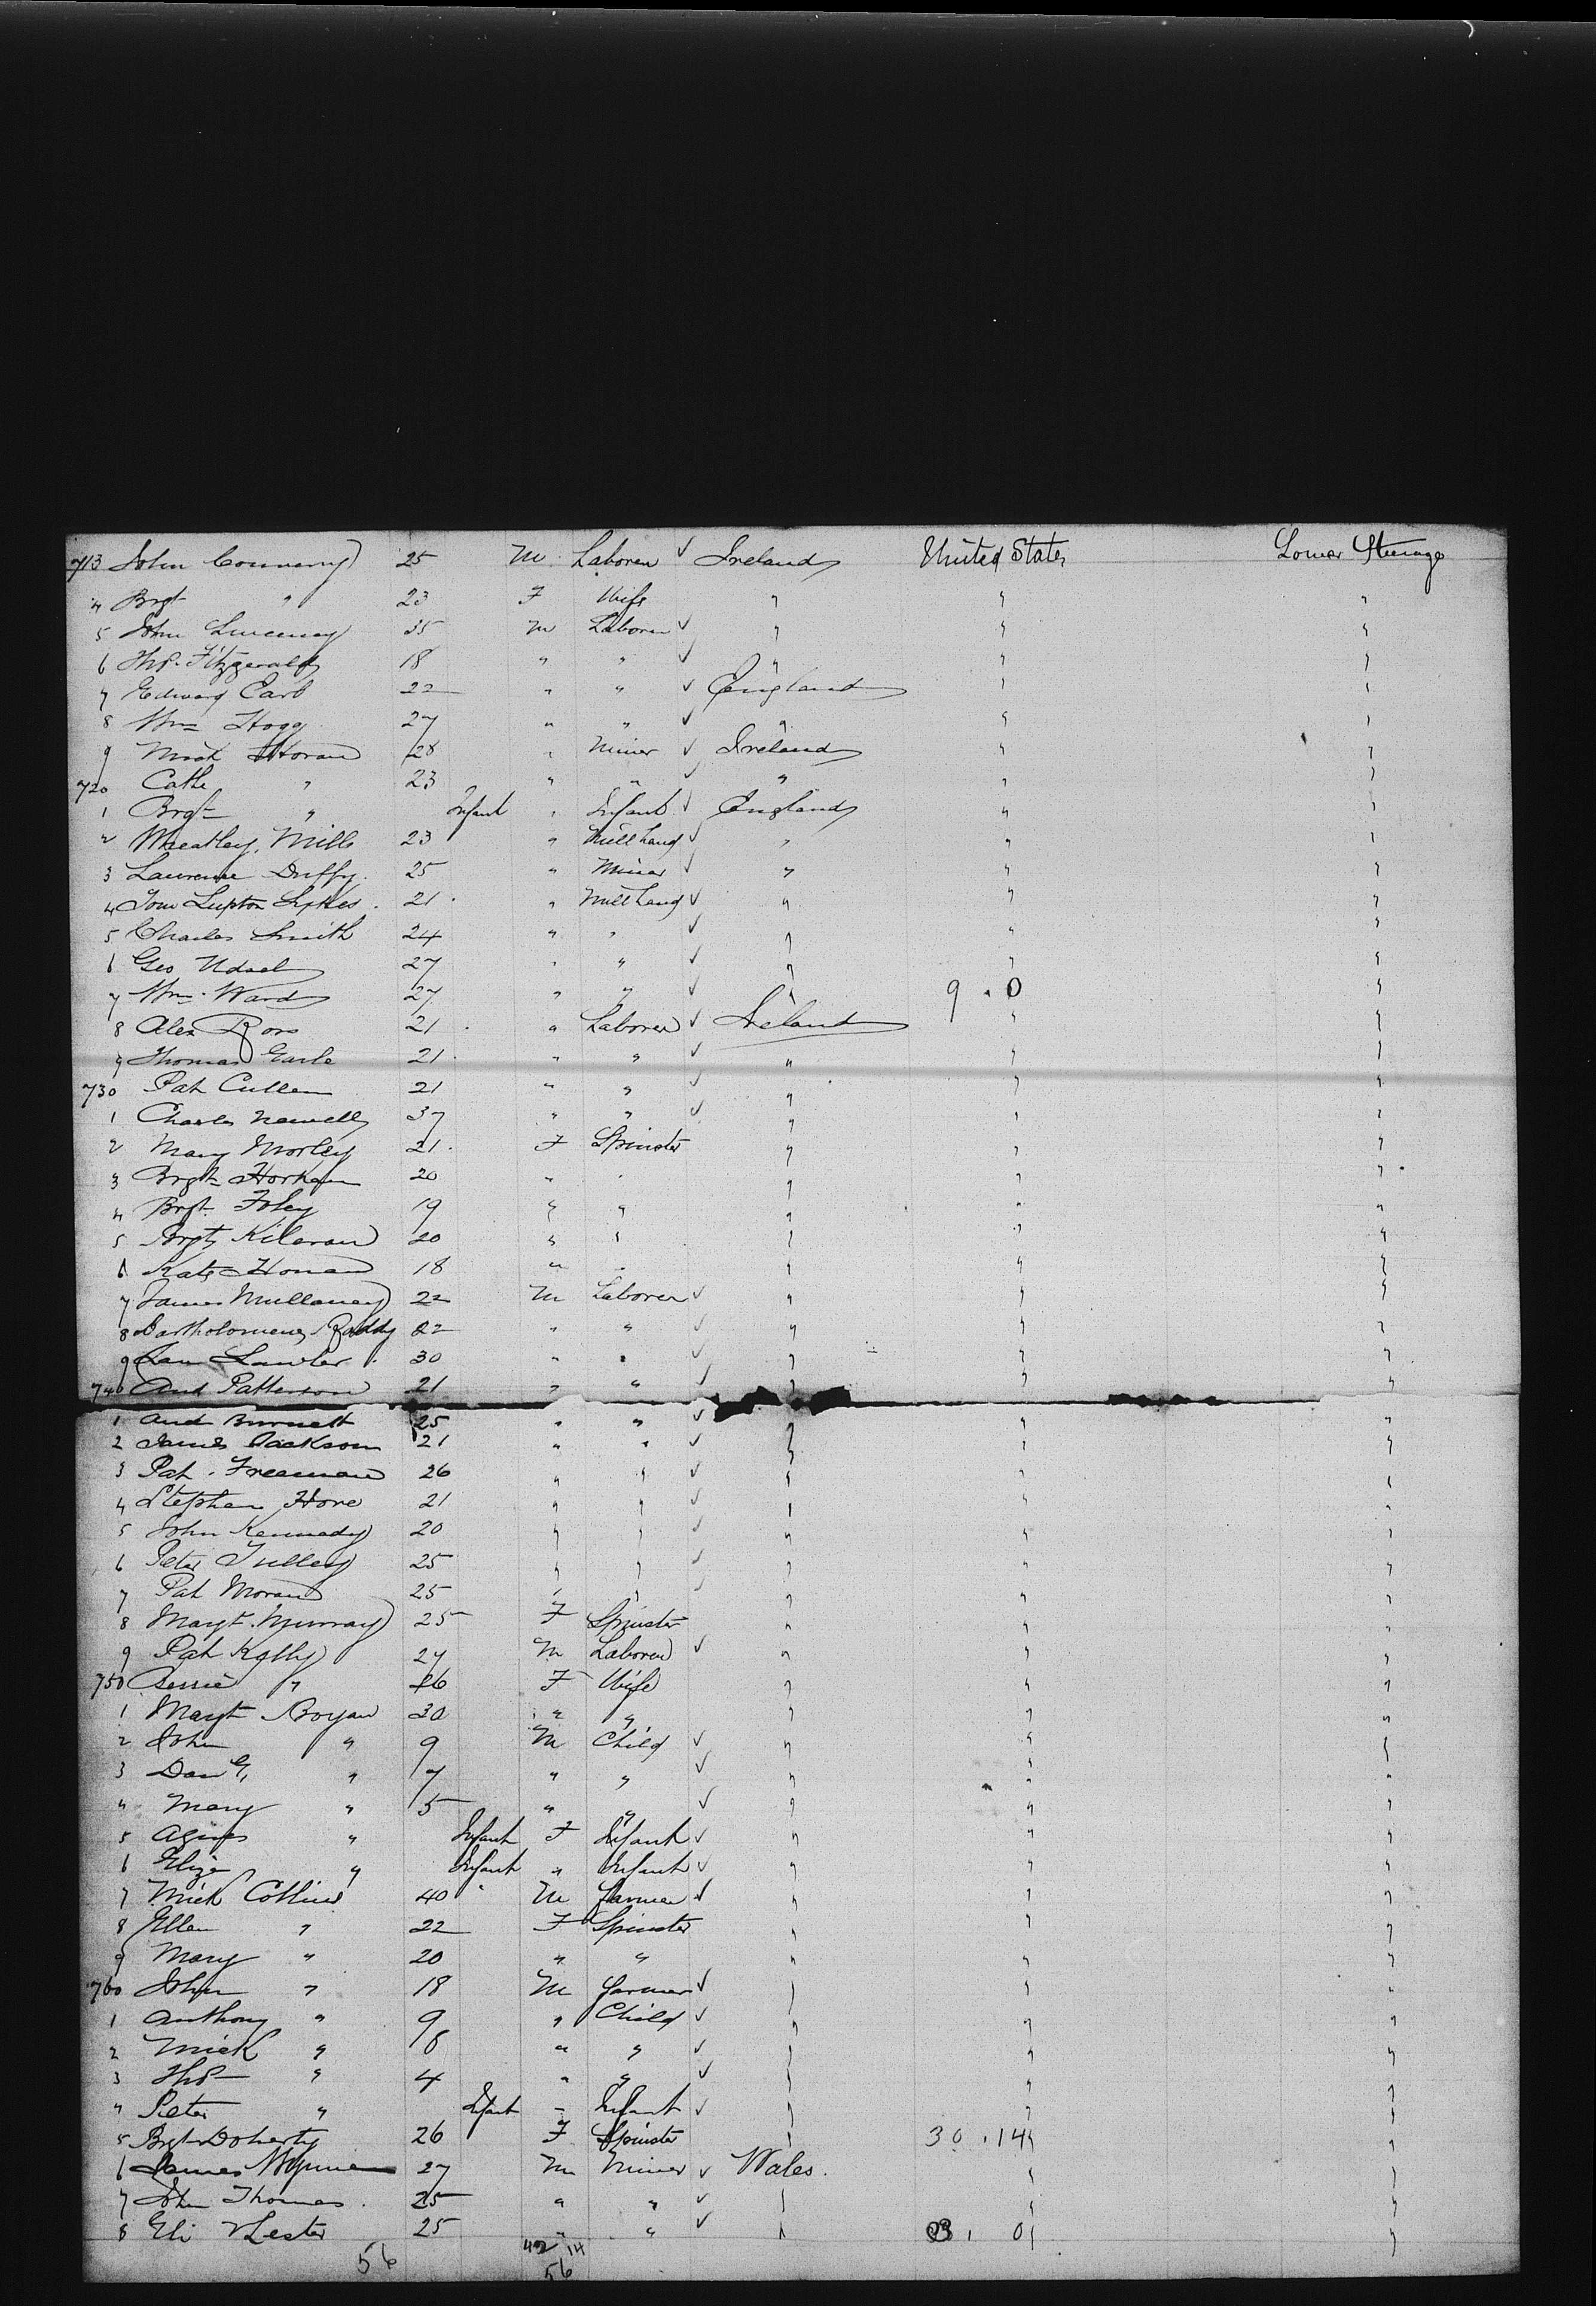 713 John Conneny 25 M Laborer ✓ Ireland United States Lower Steerage
4 Brgt " 23 F Wife " " "
5 John 35 M Laborer ✓ " " "
6 Thos. Fitzgerald 18 " " ✓ " " "
7 Edward Earl 22 " " ✓ England " "
8 Wm Hogg 27 " " ✓ " " "
9 Mick Horan 28 " Miner ✓ Ireland " "
720 Cathe " 23 " " ✓ " " "
1 Brgt " Infant " Infant ✓ England " "
2 Wheatley Mills 23 " Mill hand ✓ " " "
3 Lawrence Duffy 25 " Miner ✓ " " "
4 Tom Lupton Sykes 21 " Mill hand ✓ " " "
5 Charles Smith 24 " " ✓ " " "
6 Geo Udall 27 " " ✓ " " "
7 Wm. Ward 27 " " ✓ " 9 . 0 "
8 Alex Ross 21 " Laborer ✓ Ireland " "
9 Thomas Earle 21 " " ✓ " " "
730 Pat Cullen 21 " " ✓ " " "
1 Charles Newell 37 " " ✓ " " "
2 Mary Morley 21 F Spinster " " "
3 Brgt Horkan 20 " " " " "
4 Brgt Foley 19 " " " " "
5 Brgt Kilaran 20 " " " " "
6 Kate Honan 18 " " " " "
7 James Mullaney 22 M Laborer ✓ " " "
8 Bartholomew Roddy 22 " " ✓ " " "
9 Lawler 30 " " ✓ " " "
740 And Patterson 21 " " ✓ " " "
1 And Burnett 25 " " ✓ " " "
2 James Jackson 21 " " ✓ " " "
3 Pat. Freeman 26 " " ✓ " " "
4 Stephen Hore 21 " " ✓ " " "
5 John Kennedy 20 " " ✓ " " "
6 Peter Tulley 25 " " ✓ " " "
7 Pat Moran 25 " " ✓ " " "
8 Margt. Murray 25 F Spinster " " "
9 Pat Kelly 27 M Laborer ✓ " " "
750 Bessie " 26 F Wife " " "
1 Margt Bogan 30 " " " " "
2 John " 9 M Child ✓ " " "
3 Danl. " 7 " " ✓ " " "
4 Mary " 5 " " ✓ " " "
5 Agnes " Infant F Infant ✓ " " "
6 Eliza " Infant " Infant ✓ " " "
7 Mick Collins 40 M Farmer ✓ " " "
8 Ellen " 22 F Spinster " " "
9 Mary " 20 " " " " "
760 John " 18 M Farmer ✓ " " "
1 Anthony " 9 " Child ✓ " " "
2 Mick " 8 " " ✓ " " "
3 Thos " 4 " " ✓ " " "
4 Peter " Infant " Infant ✓ " " "
5 Brgt Doherty 26 F Spinster " 30 . 14 " "
6 James Wynne 27 M Miner ✓ Wales " "
7 John Thomas 25 " " ✓ " " "
8 Eli Lester 25 " " ✓ " 03 . 0 " "
56 42 14
56